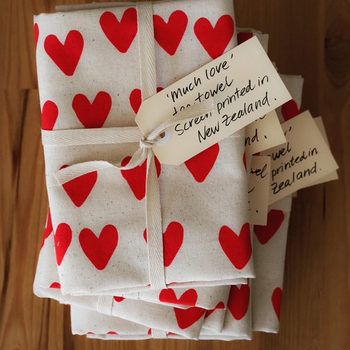 'Much love'
tea towel
Screen printed in
New Zealand.
towel
printed in
Zealand.